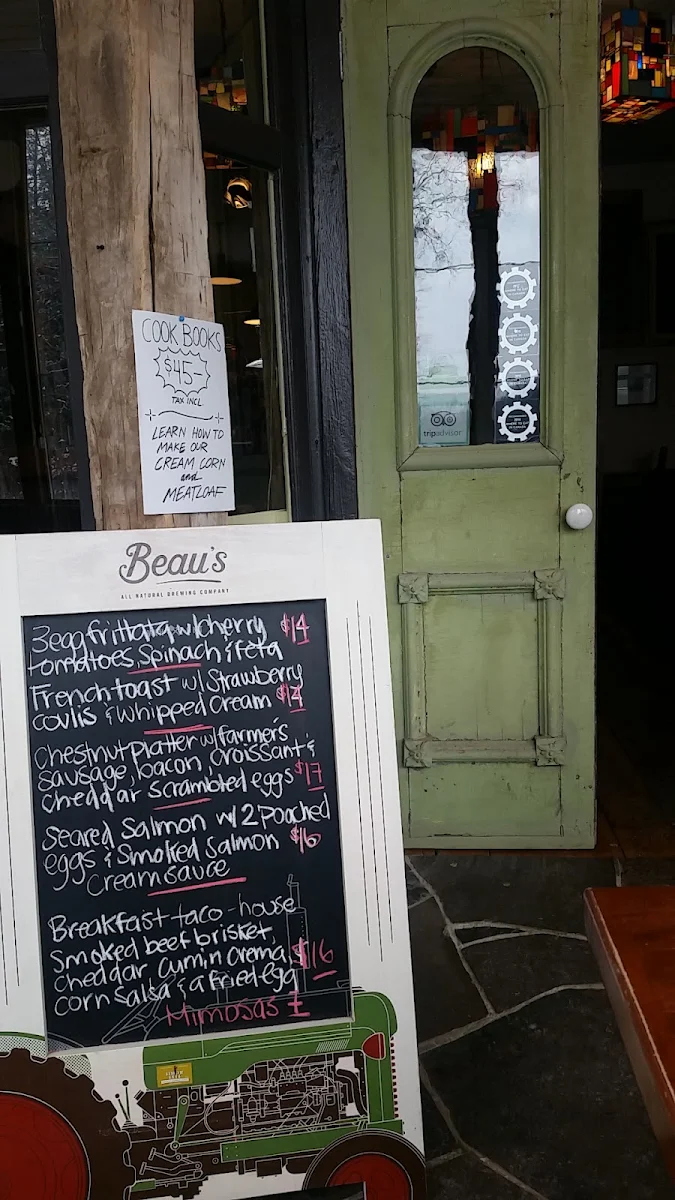 COOK BOOKS
$45-
TAX INCL
LEARN HOW TO
MAKE OUR
CREAM CORN
and
MEATLOAF
tripadvisor
Beau's
ALL NATURAL BREWING COMPANY
3 egg frittata w/ cherry $14
tomatoes, Spinach & feta
French toast w/ Strawberry
coulis & whipped cream $14
Chestnut Platter w/ farmer's
sausage, bacon croissant &
cheddar scrambled eggs $17
Seared Salmon w/ 2 Poached
eggs & Smoked Salmon $16
Cream sauce
Breakfast taco - house
Smoked beef brisket,
cheddar, cumin crema, $16
corn salsa & a fried egg
Mimosas